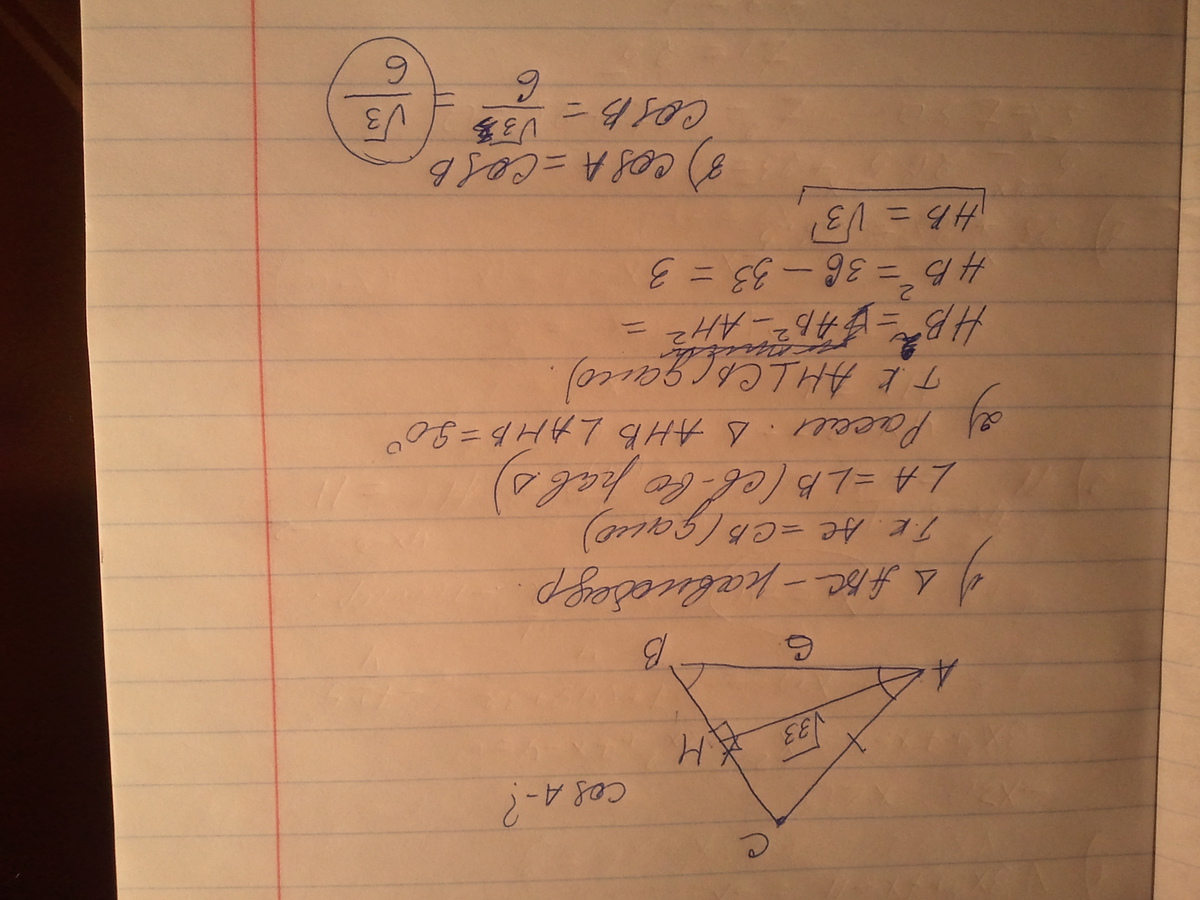 C
cos A - ?
H
√33
A
6
B
1) Δ ABC - равнобедр
т.к. AC = CB (дано)
∠A = ∠B (св-во рав Δ)
2) Рассм. Δ AHB ∠AHB = 90°
т.к AH⊥CB (дано).
HB² = AB² - AH² =
HB² = 36 - 33 = 3
HB = √3
3) cos A = cos B
cos B = √3/6 = √3/6